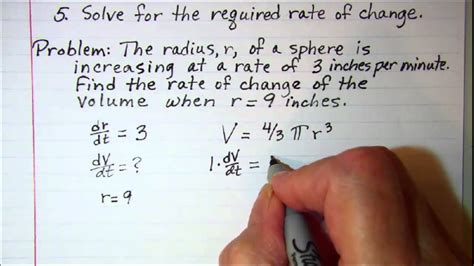 5. Solve for the required rate of change.
Problem: The radius, r, of a sphere is
increasing at a rate of 3 inches per minute.
Find the rate of change of the
volume when r = 9 inches.
dr/dt = 3 V = 4/3 π r³
dV/dt = ? 1 · dV/dt =
r = 9